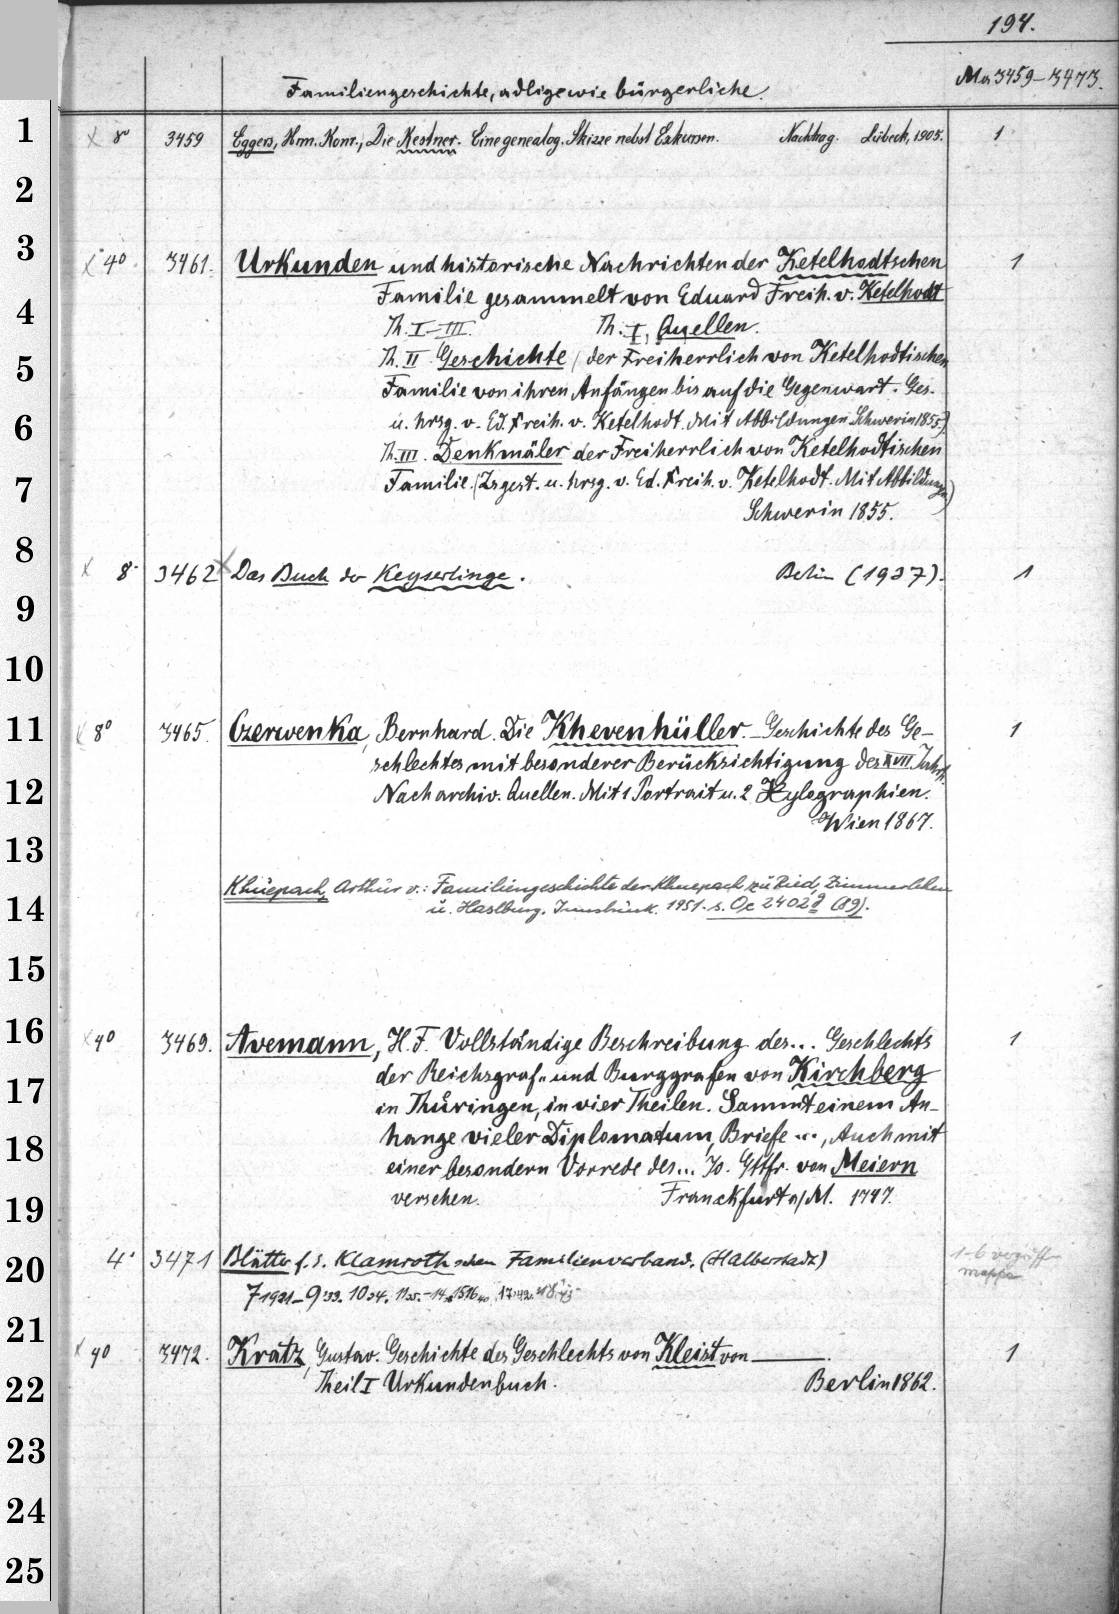 194.
Familiengeschichte, adlige wie bürgerliche.
Ma 3459-3473.
1
x 8° 3459 Eggers, Hrm. Konr., Die Kestner. Eine genealog. Skizze nebst Exkursen. Nachtrag. Lübeck, 1905. 1
2
3
x 4° 3461. Urkunden und historische Nachrichten der Ketelhodtschen 1
Familie gesammelt von Eduard Freih. v. Ketelhodt
4
Th. I-III. Th. I, Quellen.
5
Th. II Geschichte (der Freiherrlich von Ketelhodtischen
Familie von ihren Anfängen bis auf die Gegenwart. Ges.
6
u. hrsg. v. Ed. Freih. v. Ketelhodt. Mit Abbildungen Schwerin 1855)
Th. III. Denkmäler der Freiherrlich von Ketelhodtischen
7
Familie. (Zsgest. u. hrsg. v. Ed. Freih. v. Ketelhodt. Mit Abbildungen)
Schwerin 1855.
8
x 8° 3462 x Das Buch der Keyserlinge. Berlin (1937). 1
9
10
11
x 8° 3465. Czerwenka, Bernhard. Die Khevenhüller. - Geschichte des Ge- 1
schlechtes mit besonderer Berücksichtigung des XVII. Jahrh.
12
Nach archiv. Quellen. Mit 1 Portrait u. 2 Xylographien.
Wien 1867.
13
Khuepach, Arthur v.: Familiengeschichte der Khuepach zu Ried, Zimmerlehen
14
u. Haslburg. Innsbruck. 1951. s. Oc 2402g (19).
15
16
x 4° 3469. Avemann, H. F. Vollständige Beschreibung des... Geschlechts 1
der Reichsgraf- und Burggrafen von Kirchberg
17
in Thüringen, in vier Theilen. Sammt einem An-
hange vieler Diplomatum, Briefe ..., Auch mit
18
einer besondern Vorrede des... Jo. Gttfr. von Meiern
19
versehen. Franckfurt a/M. 1747.
20
4° 3471 Blätter f. d. Klamrothschen Familienverband. (Halberstadt) 1-6 vergriff
mappe
7 1931-9 '33. 10 34. 11 35.-14. 15 16 40 17 '42. 18 '43
21
x 4° 3472. Kratz, Gustav. Geschichte des Geschlechts von Kleist von ——. 1
22
Theil I Urkundenbuch. Berlin 1862.
23
24
25